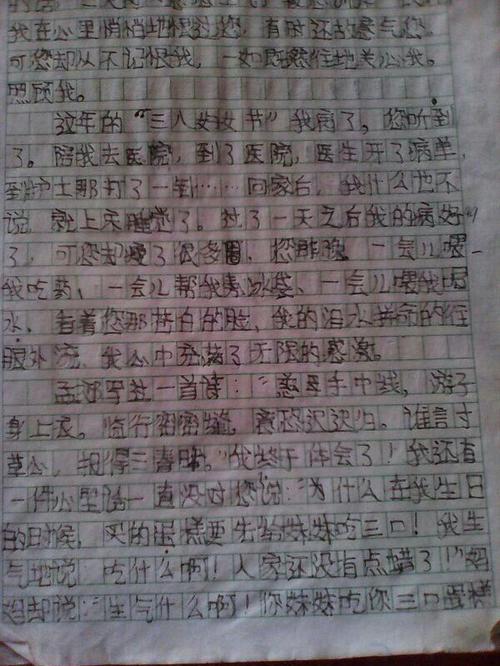 我在心里悄悄地恨过您，有时还故意气您。
可您却从不记恨我，一如既然往地关心我。
照顾我。
这年的“三八妇女节”我病了。您听到
了。陪我去医院，到了医院，医生开了病单，
到护士那打了一针……回家后，我什么也不
说，就上床睡觉了。过了一天之后我的病好
了，可您却瘦了很多圈，您那晚，一会儿喂
我吃药、一会儿帮我敷冰袋、一会儿喂我喝
水，看着您那苍白的脸，我的泪水拼命的往
眼外流，我心中充满了无限的感激。
孟郊写过一首诗：“慈母手中线，游子
身上衣。临行密密缝，意恐迟迟归。谁言寸
草心，报得三春晖。”我终于体会了！我还有
一件心里话一直没对您说：“为什么在我生日
的日时候，买的蛋糕要先给妹妹吃三口！我生
气地说：吃什么啊！人家还没有点蜡了！”妈
妈却说：“生气什么啊！你妹妹吃你三口蛋糕